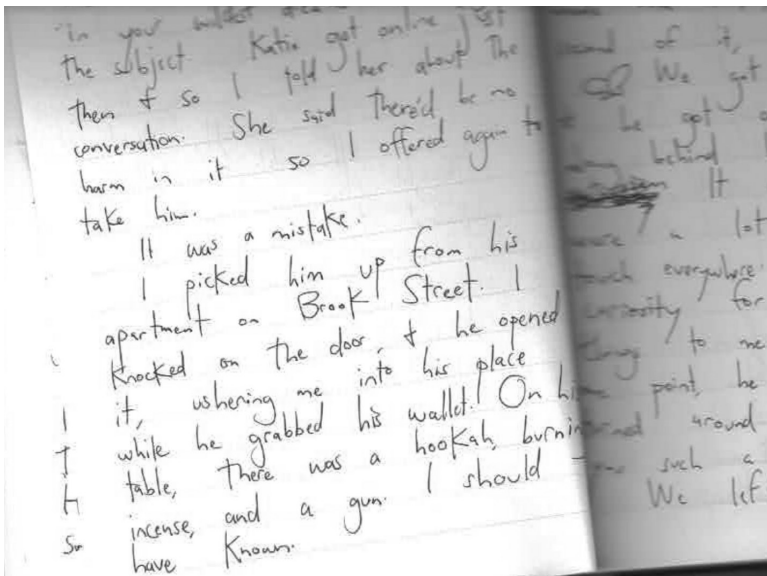 "in your wildest
the subject. Katie got online just
then & so I told her about the
conversation. She said there'd be no
harm in it so I offered again to
take him.
It was a mistake.
I picked him up from his
apartment on Brook Street. I
knocked on the door, & he opened
it, ushering me into his place
while he grabbed his wallet. On his
table, there was a hookah, burning
incense, and a gun. I should
have known.
of it,
We got
he got
behind
It
a lot
everywhere.
curiosity for
to me
point, he
around
such a
We lef